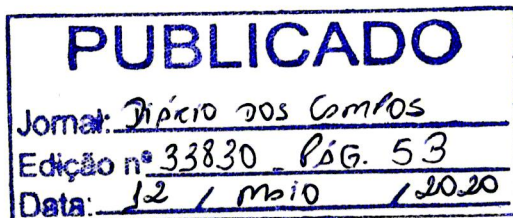 PUBLICADO
Jornal: Diário dos Campos
Edição nº 33830 - PÁG. 53
Data: 12 / maio / 2020